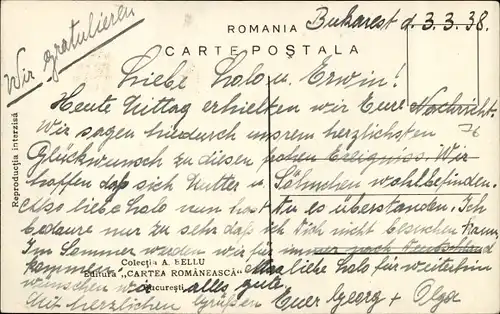 Wir gratulieren
ROMANIA
Bukarest d. 3.3.38.
CARTE POȘTALA
Liebe Lalo u. Erwin!
Heute Mittag erhielten wir Eure Nachricht.
Wir sagen hiedurch unsrem herzlichsten
76
Glückwunsch zu diesen frohen Ereigniss. Wir
hoffen daß sich Mutter u. Söhnchen wohlbefinden.
Also liebe Lalo nun hast Du es überstanden. Ich
bedaure nur zu sehr daß ich Dich nicht besuchen kann.
Im Sommer werden wir für immer nach Deutschland
kommen. Also liebe Lalo für weiterhin
wünschen wir alles gute
Mit herzlichen Grüßen Euer Georg + Olga
Reproducția interzisă
Colecția A. BELLU
Editura „CARTEA ROMÂNEASCĂ"
București